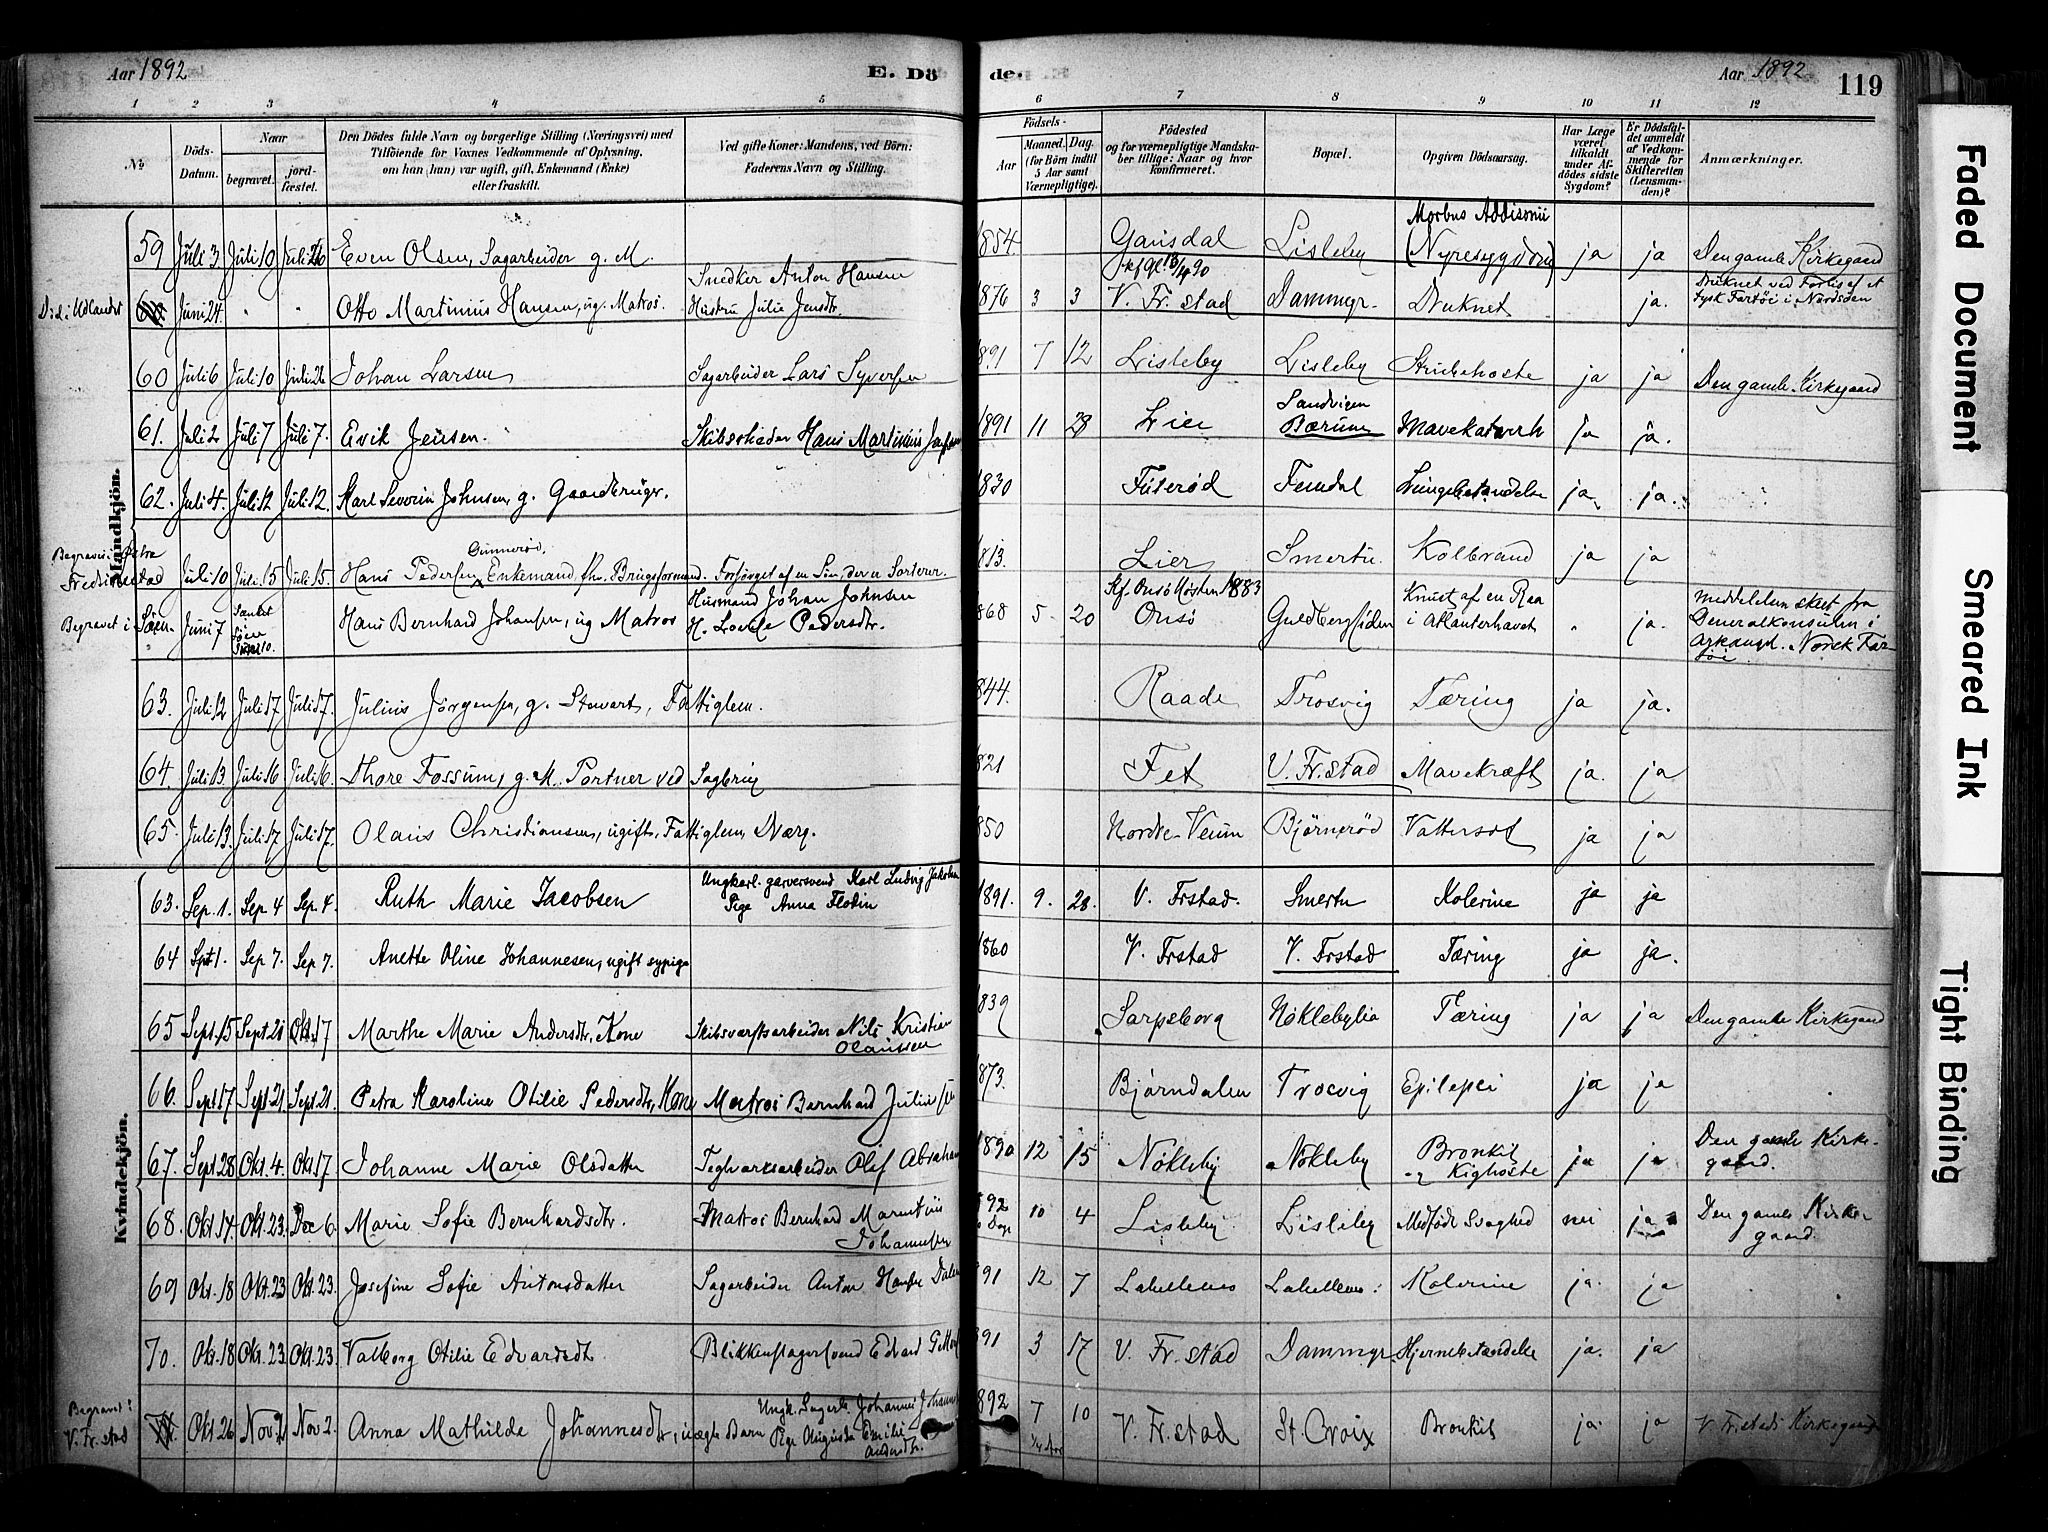 Aar 1892
E. Dö
de.
Aar 1892
119
1 2 3 4 5 6 7 8 9 10 11 12
No
Döds-
Datum.
Naar
begravet.
jord-
fæstet.
Den Dödes fulde Navn og borgerlige Stilling (Næringsvei) med
Tilföiende for Voxnes Vedkommende af Oplysning,
om han (hun) var ugift, gift, Enkemand (Enke)
eller fraskilt.
Ved gifte Koner: Mandens, ved Börn:
Faderens Navn og Stilling.
Födsels-
Aar
Maaned. Dag.
(for Börn indtil
5 Aar samt
Værnepligtige).
Födested
og for værnepligtige Mandska-
ber tillige: Naar og hvor
konfirmeret.
Bopæl.
Opgiven Dödsaarsag.
Har Læge
været
tilkaldt
under Af-
dödes sidste
Sygdom?
Er Dödsfal-
det anmeldt
af Vedkom-
mende for
Skifteretten
(Lensman-
den)?
Anmærkninger.
Mandkjön.
59 Juli 3 Juli 10 Juli 26 Even Olsen, Sagarbeider g. M. 1854. Gausdal Lisleby Morbus Addisonii (Nyresygdom) ja ja Den gamle Kirkegaard
D. i Udlandet Juni 24. " " Otto Martinius Hansen, ug. Matros. Snedker Anton Hansen
Hustru Julie Jensdtr. 1876 3 3 V. Fr.stad Dammyr. Druknet ja. Druknet ved Forlis af et
tysk Fartöi i Nordsöen
60 Juli 6 Juli 10 Juli 26 Johan Larsen Sagarbeider Lars Syversen 1891 7 12 Lisleby Lisleby Strubehoste ja ja Den gamle Kirkegaard
61. Juli 2 Juli 7 Juli 7. Erik Jensen. Hans Martinius 1891 11 28 Lier Sandvigen
Bærum Mavekatarrh ja ja.
62. Juli 4. Juli 12 Juli 12. Karl Severin Johnsen, g. Gaardbruger. 1830 Femdal Lungebetændelse ja ja.
Begravet i Østre
Fredrikstad Juli 10 Juli 15 Juli 15. Hans Pedersen Gunnerød, Enkemand fhv. Brugsformand. Forsörget af en Sön, der er Sorterer. 1813. Lier Smertu Kolbrand ja ja
Begravet i Søen Juni 7 Sænket
i Søen
Juni 10. Hans Bernhard Johansen, ug Matros Husmand Johan Johnsen
H. Pedersdtr. 1868 5 20 Kf. Onsö Høsten 1883
Onsö Guldbergsiden Knust af en Raa
i Atlanterhavet " ja. Meddelelse skeet fra
Generalkonsulen i
Arkangel. Norsk Far-
töi
63. Juli 12 Juli 17 Juli 17. Julius Jörgensen, g. Stuvert, Fattiglem. 1844. Raade Trosvig Tæring ja ja.
64. Juli 13 Juli 16 Juli 16. Thore Fossum, g. M. Portner ved Sagbrug 1821 Fet V. Fr.stad Mavekræft ja. ja
65. Juli 13. Juli 17 Juli 17. Olaus Christiansen, ugift, Fattiglem, Dværg. 1850 Nordre-Veum Bjørnerød Vattersot ja ja
Kvindekjön.
63. Sep. 1. Sep 4 Sep. 4. Ruth Marie Jacobsen Ungkarl. garversvend Karl Ludvig Jakobsen
Pige Anna Flotin 1891. 9. 28. V. Frstad. Smertu Kolerine ja ja
64 Sept 1. Sep 7. Sep 7. Anette Oline Johannesen, ugift sypige 1860 V. Frstad V. Frstad Tæring ja ja.
65 Sept. 15 Sept 21 Okt. 17 Marthe Marie Andersdtr, Kone Skibsværftsarbeider Nils Kristian
Olaussen 1839 Sarpsborg Nöklebylia Tæring ja ja Den gamle Kirkegaard
66. Sept 17 Sept 21 Sept 21. Petra Karoline Otilie Pedersdtr, Kone Matros Bernhard Juliussen 1873. Bjørndalen Trosvig Epilepsi ja ja
67. Sept 28 Okt. 4. Okt 17 Johanne Marie Olsdatter Teglværksarbeider Olaf Abraham 1890 12 15 Nökleby Nökleby Bronkit
og Kighoste ja ja Den gamle Kirke-
gaard.
68. Okt 14. Okt. 23. Dec 6. Marie Sofie Bernhardsdtr. Matros Bernhard
Johannesen 1892 10 4 Lisleby Lisleby Medfödt Svaghed nei ja Den gamle Kirke-
gaard.
69 Okt. 18 Okt 23 Okt. 23. Josefine Sofie Antonsdatter Sagarbeider Anton Hansen Dalen 1891 12 7 Lahellemo Lahellemo: Kolerine ja. ja
70. Okt. 18 Okt. 23 Okt. 23. Valborg Otilie Edvardsdtr Blikkenslagersvend Edvard 1891 3 17 V. Fr.stad Dammyr. Hjernebetændelse ja. ja
Begravet i
V. Fr.stad Okt 26 Nov. 2 Nov 2. Anna Mathilde Johannesdtr, uægte Barn Ungk. Sagarb. Johannes
Pige Augusta Emilie
Andersdtr. 1892 7 10 V. Fr.stad St. Croix Bronkit ja. ja V. Fr.stads Kirkegaard
Faded Document
Smeared Ink
Tight Binding